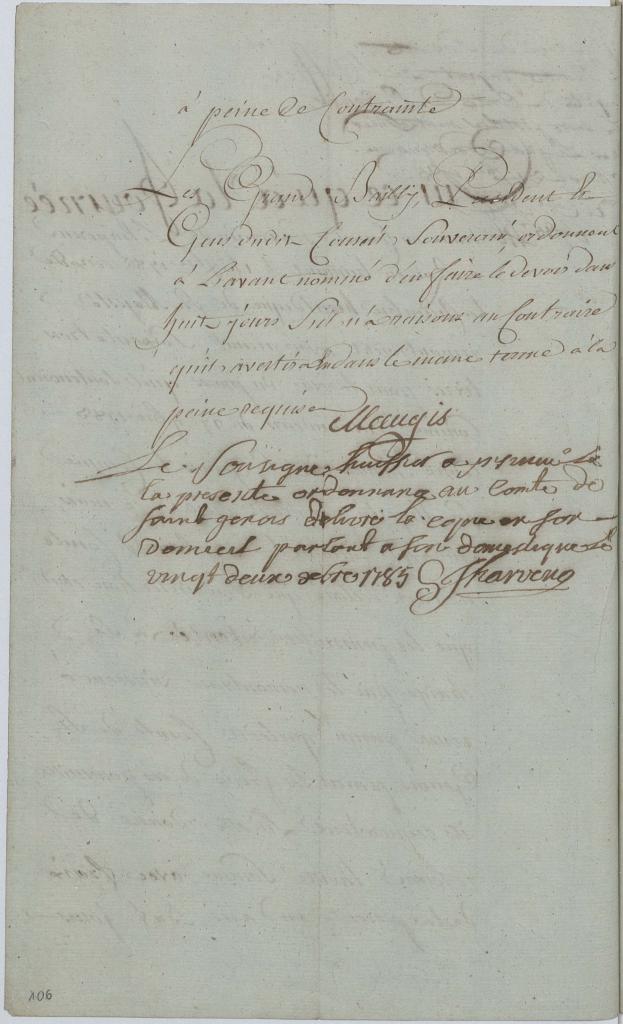 à peine de Contrainte
Les Grand Bailly, Président et
Gens dudit Conseil Souverain, ordonnent
à L'avant nommé d'en faire le devoir dans
huit jours S'il n'a raisons au Contraire
qu'il avertira dans le meme terme à la
peine requise Maugis
Le Soussigné huissier a
la presente ordonnance au Comte de
saint genois delivré la copie en son
domicil parlant a son domestique Le
vingt deux xbre 1785
106